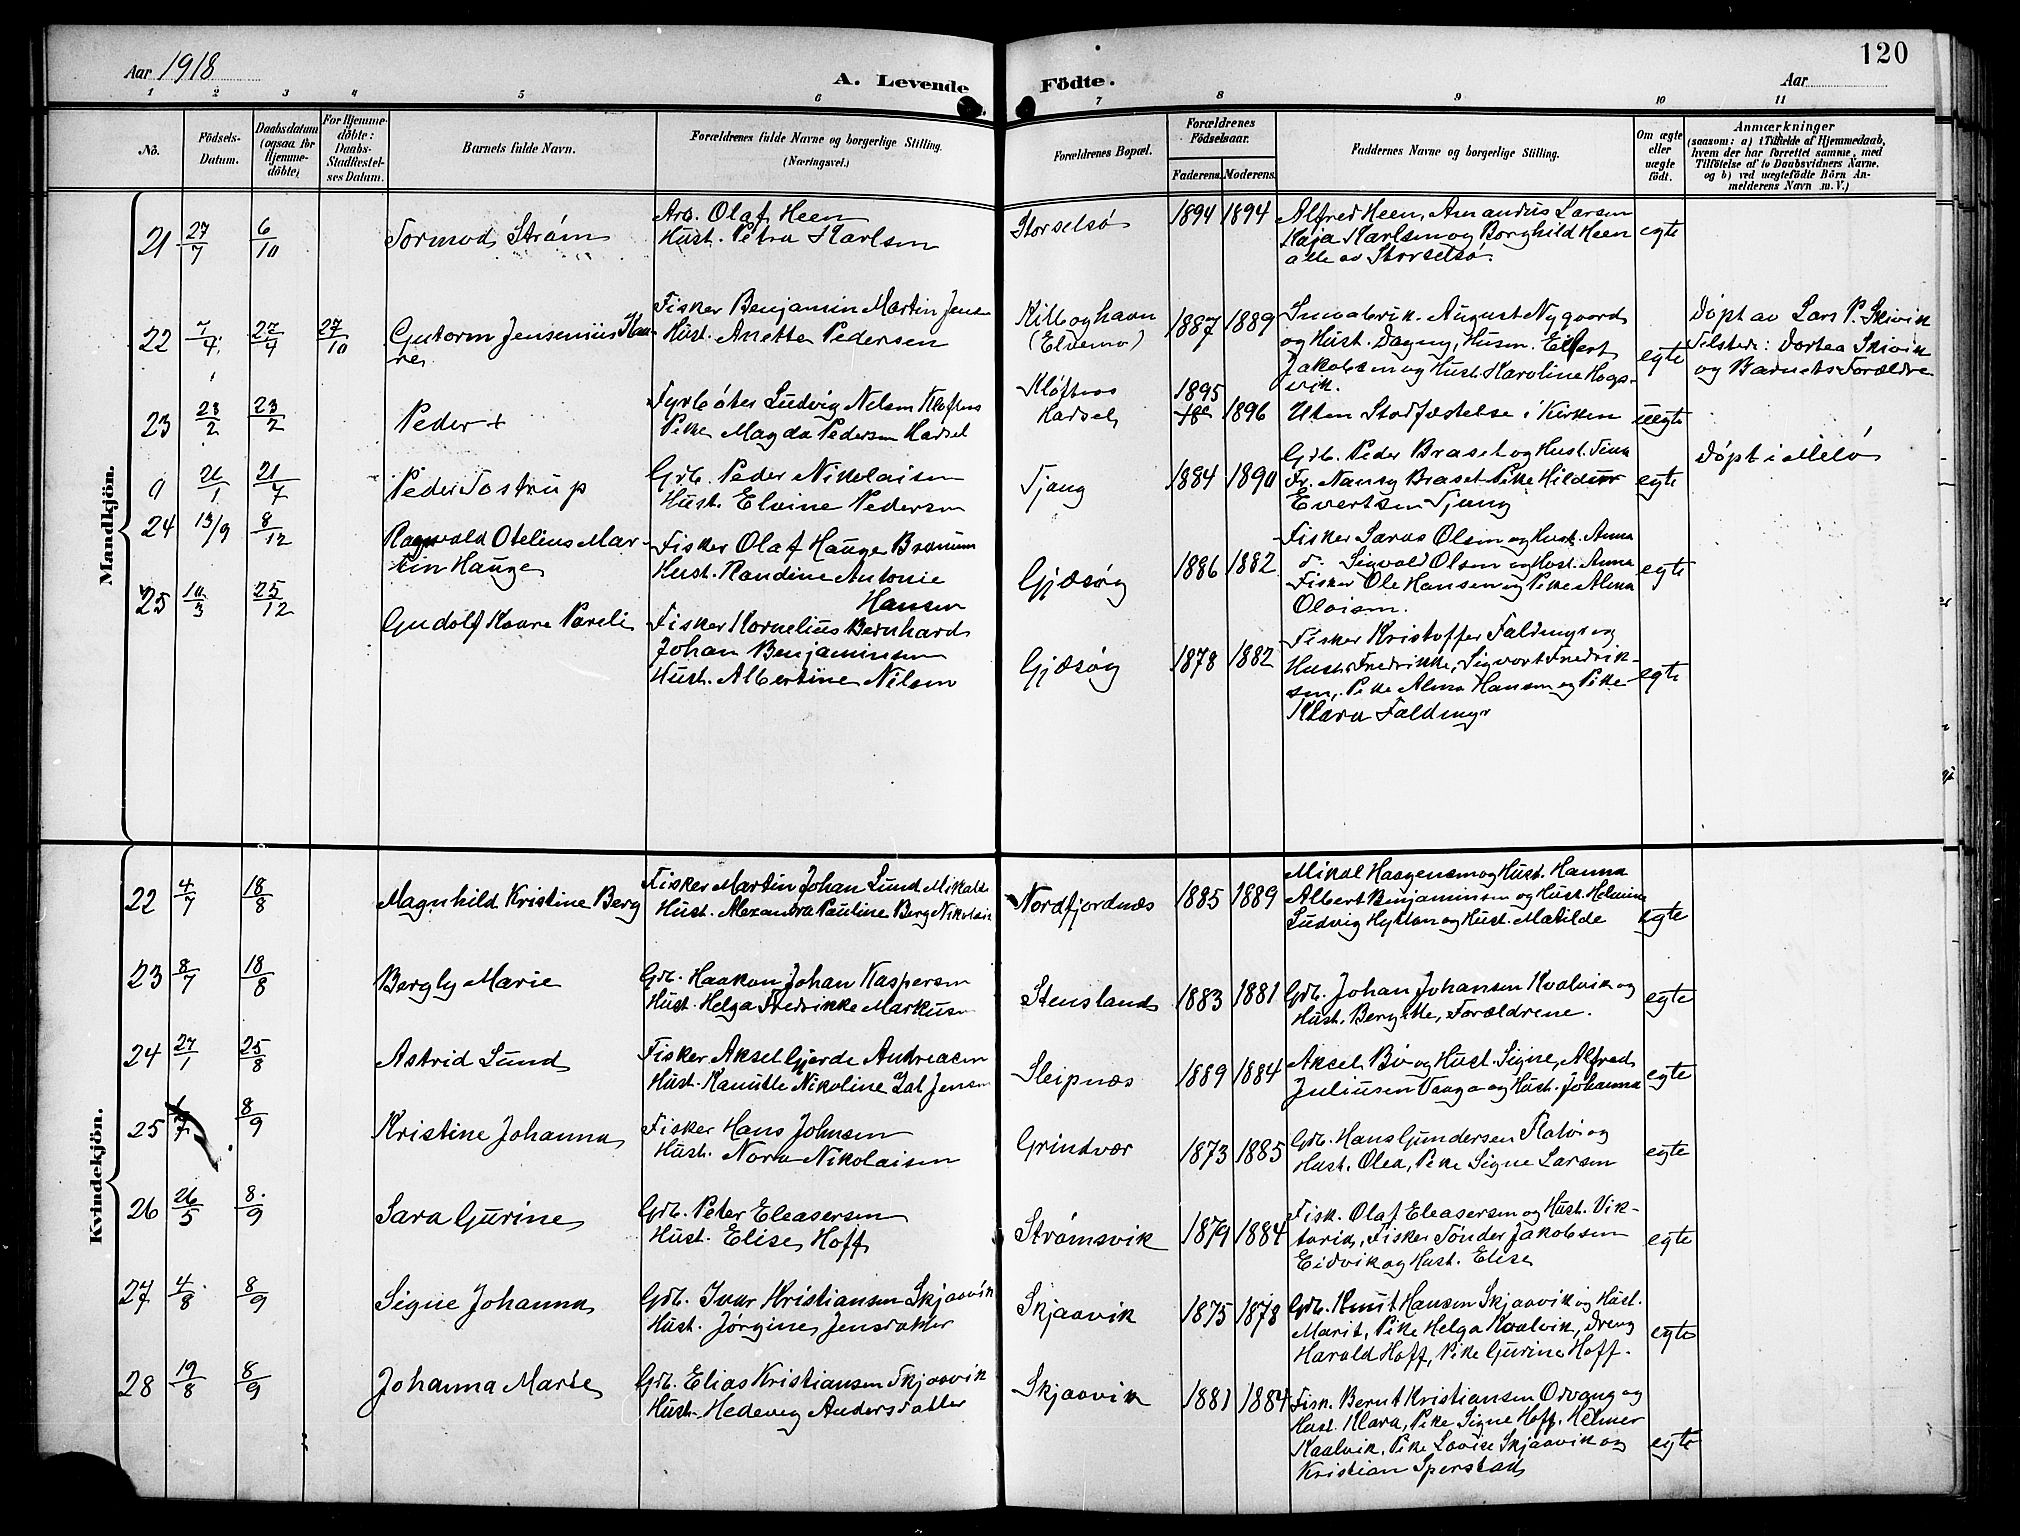 Aar 1918
A. Levende Födte.
Aar
120
1 2 3 4 5 6 7 8 9 10 11
Nö.
Födsels-Datum.
Daabsdatum (ogsaa for Hjemmedöbte)
For Hjemmedöbte: Daabs-Stadfæstelses Datum.
Barnets fulde Navn.
Forældrenes fulde Navne og borgerlige Stilling. (Næringsvei.)
Forældrenes Bopæl.
Forældrenes Födselsaar.
Faderens. Moderens.
Faddernes Navne og borgerlige Stilling.
Om ægte eller uægte födt.
Anmærkninger
(saasom: a) i Tilfælde af Hjemmedaab,
hvem der har forrettet samme, med
Tilföielse af to Daabsvidners Navne.
og b) ved uægtefödte Börn An-
melderens Navn m. V.)
Mandkjön.
21 27/7 6/10 Tormod Strøm
Arb. Olaf Heen
Hust. Petra Karlsen
Storselsø 1894 1894
Alfred Heen, Amandus Larsen
Kaja Karlsen og Borghild Heen
alle av Storselsø.
egte
22 7/4 27/4 27/10 Gutorm Jensenius Kaa-
re
Fisker Benjamin Martin Jensen
Hust. Anette Pedersen
Kilboghavn
(Elvemo)
1887 1889
August Nygaard
og Hust. Dagny, Husm. Eilert
Jakobsen og Hust. Karoline Hogs-
vik.
egte
Døpt av Lars P. Skivik
Tilstede: Dortea Skivik
og Barnets Forældre
23 23/2 23/2 Peder +
Fyrbøter Ludvig Nilsen Kløftnes
Pike Magda Pedersen Hadsel
Kløftnes
Hadsel
1895
1896
Uten Stadfæstelse i Kirken
uegte
a 26/1 21/7 Peder Tostrup
Grb. Peder Nikolaisen
Hust. Elvine Pedersen
Tjong 1884 1890
Grb. Peder Braset og Hust. Tina
Fr. Nansy Braset Pike Hildur
Evertsen Tjong
egte
Døpt i Melø
24 13/9 8/12 Ragnvald Otelius Mar-
tin Hauge
Fisker Olaf Hauge
Hust. Randine Antonie
Hansen
Gjæsøy 1886 1882
Fisker Olsen og Hust. Anna
d. Sigvald Olsen og Hust. Anna
Fisker Ole Hansen og Pike Alma
Olaisen.
egte
25 10/3 25/12 Gudolf Kaare Pareli
Fisker Kornelius Bernhard
Johan Benjaminsen
Hust. Albertine Nilsen
Gjæsøy 1878 1882
Fisker Kristoffer Faldmyr og
Hust. Fredrikke, Sigvart Fredrik-
sen, Pike Alma Hansen og Pike
Klara Faldmyr
egte
Kvindekjön.
22 4/7 18/8 Magnhild Kristine Berg
Fisker Martin Johan Lund
Hust. Alexandra Pauline Berg
Nordfjordnæs 1885 1889
Mikal Haagensen og Hust. Hanna
Albert Benjaminsen og Hust. Helmine
Ludvig Hytten og Hust. Matilde
egte
23 8/7 18/8 Bergly Marie
Grb. Haakon Johan Kaspersen
Hust. Helga Fredrikke Markusn
Stensland 1883 1881
Grb. Johan Johansen Kvalvik og
Hust. Bergitte, Forældrene.
egte
24 27/1 25/8 Astrid Lund
Fisker Aksel Gjerde Andreasen
Hust. Kanutte Nikoline Jensen
Sleipnæs 1889 1884
Aksel Bø og Hust. Signe, Alfred
Juliusen Vaaga og Hust. Johanna
egte
25 1/7 8/9 Kristine Johanna
Fisker Hans Johnsen
Hust. Nora Nikolaisen
Grindvær 1873 1885
Grb. Hans Gundersen Flatø og
Hust. Olea, Pike Signe Larsen
egte
26 26/5 8/9 Sara Gurine
Grb. Peter Eleasersen
Hust. Elise Hoff
Strømsvik 1879 1884
Fisk. Olaf Eleasersen og Hust. Vik-
toria, Fisker Tønder Jakobsen
Eidvik og Hust. Elise
egte
27 4/8 8/9 Signe Johanna
Grb. Ivar Kristiansen Skjaavik
Hust. Jørgine Jensdatter
Skjaavik 1875 1878
Grb. Knut Hansen Skjaavik og Hust.
Marit, Pike Helga Kvalvik, Dreng
Harald Hoff, Pike Gurine Hoff.
egte
28 19/8 8/9 Johanna Marie
Grb. Elias Kristiansen Skjaavik
Hust. Hedevig Andersdatter
Skjaavik 1881 1884
Fisk. Bernt Kristiansen Odvang og
Hust. Klara, Pike Signe Hoff, Helmer
Kvalvik, Pike Lovise Skjaavik og
Kristian Sperstad
egte